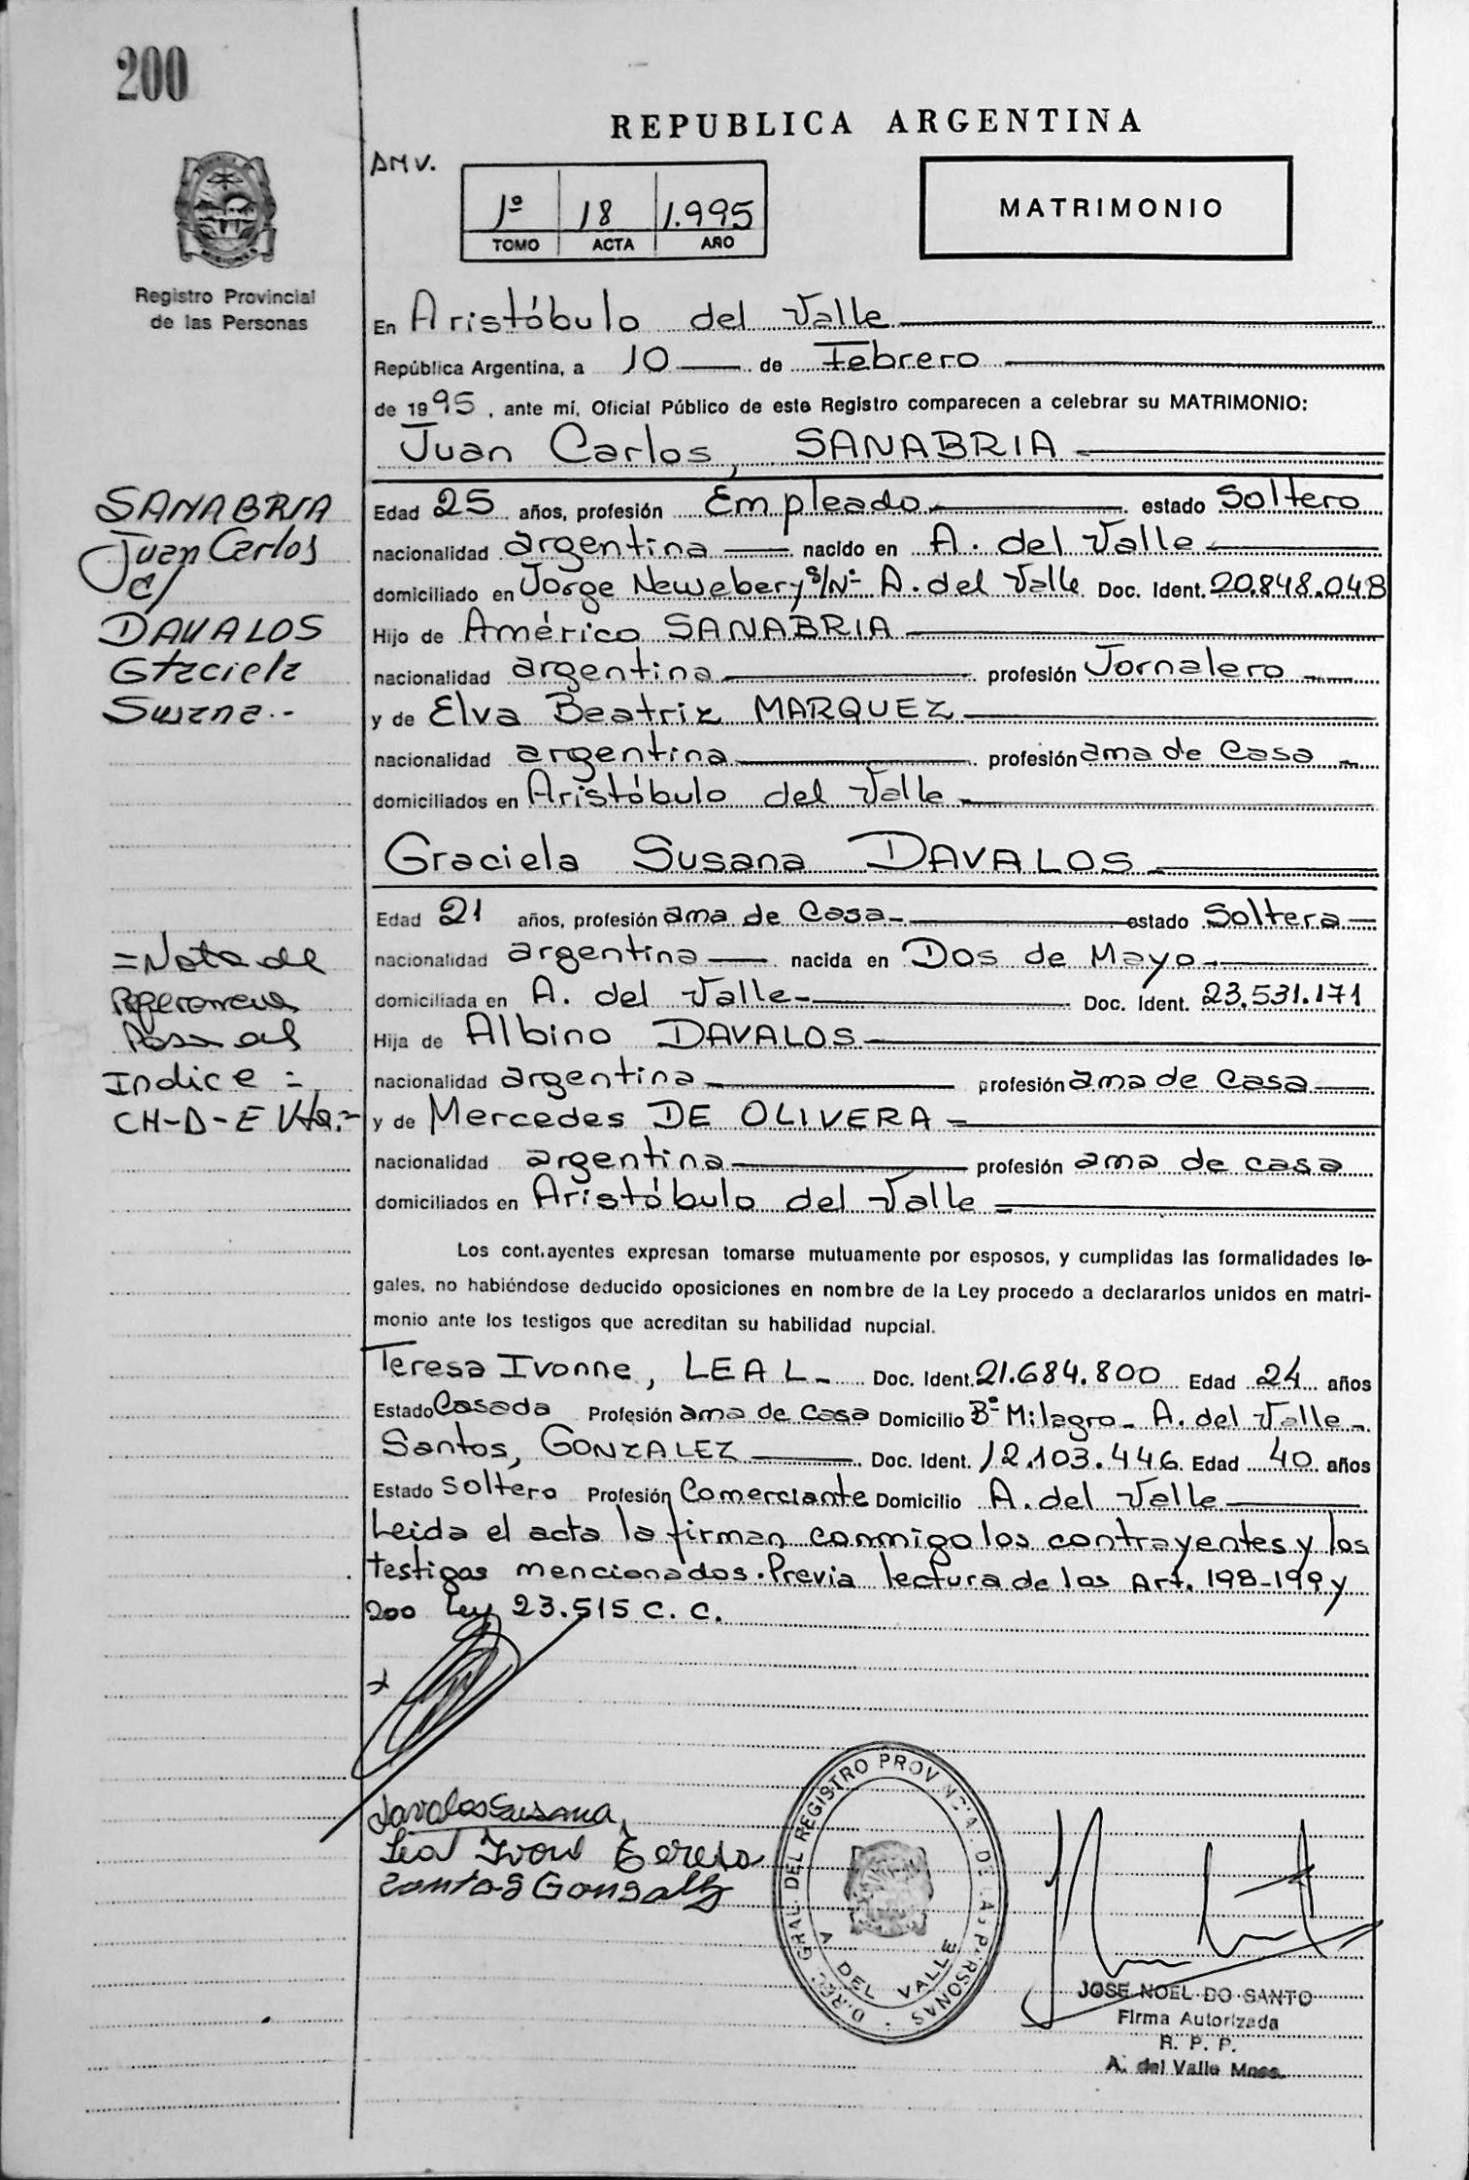 200
REPUBLICA ARGENTINA
AMV.
1º 18 1.995
TOMO ACTA AÑO
MATRIMONIO
Registro Provincial
de las Personas
En Aristóbulo del Valle
República Argentina, a 10 de Febrero
de 1995, ante mí, Oficial Público de este Registro comparecen a celebrar su MATRIMONIO:
Juan Carlos, SANABRIA
SANABRIA
Juan Carlos
c/
DAVALOS
Graciela
Susana.-
Edad 25 años, profesión Empleado estado Soltero
nacionalidad argentina nacido en A. del Valle
domiciliado en Jorge Newebery S/Nº A. del Valle Doc. Ident. 20.848.048
Hijo de Américo SANABRIA
nacionalidad argentina profesión Jornalero
y de Elva Beatriz MARQUEZ
nacionalidad argentina profesión ama de Casa
domiciliados en Aristóbulo del Valle
Graciela Susana DAVALOS
Edad 21 años, profesión ama de Casa estado Soltera
nacionalidad argentina nacida en Dos de Mayo
domiciliada en A. del Valle Doc. Ident. 23.531.171
Hija de Albino DAVALOS
nacionalidad argentina profesión ama de Casa
y de Mercedes DE OLIVERA
nacionalidad argentina profesión ama de casa
domiciliados en Aristóbulo del Valle
=Nota de
Pasa al
Indice =
CH-D-E Vta.=
Los contrayentes expresan tomarse mutuamente por esposos, y cumplidas las formalidades le-
gales, no habiéndose deducido oposiciones en nombre de la Ley procedo a declararlos unidos en matri-
monio ante los testigos que acreditan su habilidad nupcial.
Teresa Ivonne, LEAL Doc. Ident. 21.684.800 Edad 24 años
Estado Casada Profesión ama de Casa Domicilio Bº Milagro - A. del Valle
Santos, GONZALEZ Doc. Ident. 12.103.446 Edad 40 años
Estado Soltero Profesión Comerciante Domicilio A. del Valle
Leida el acta la firman conmigo los contrayentes y los
testigos mencionados. Previa lectura de los Art. 198-199 y
200 Ley 23.515 C. C.
Davalos Susana
Leal Ivone Teresa
Santos Gonzalez
DIREC. GRAL. DEL REGISTRO PROVINCIAL DE LAS PERSONAS
A DEL VALLE
JOSE NOEL DO SANTO
Firma Autorizada
R. P. P.
A. del Valle Mnes.